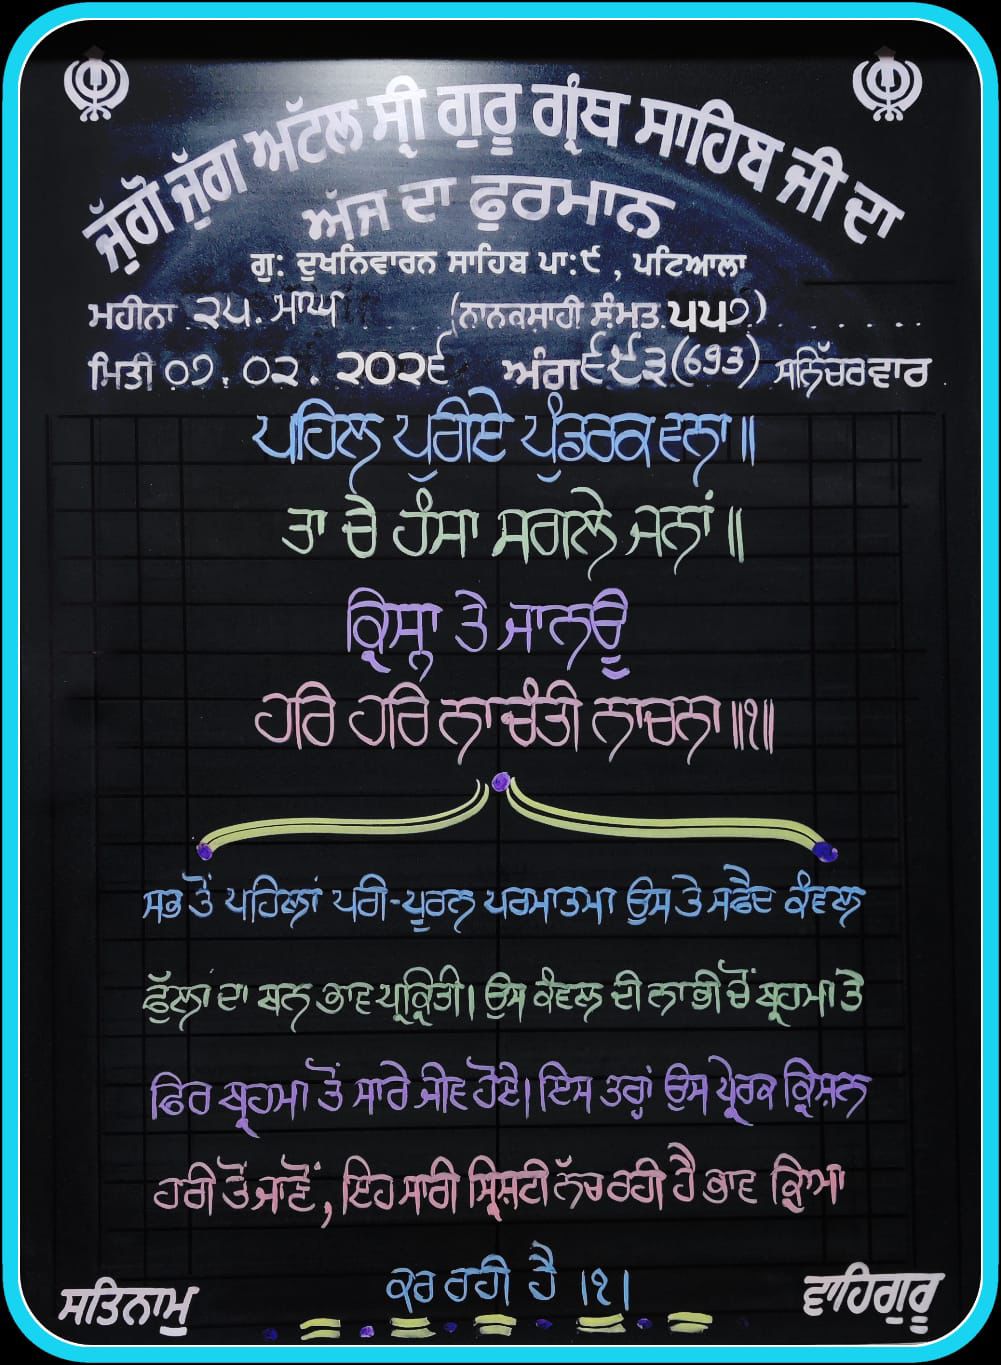 ਜੁੱਗੋ ਜੁੱਗ ਅਟੱਲ ਸ੍ਰੀ ਗੁਰੂ ਗ੍ਰੰਥ ਸਾਹਿਬ ਜੀ ਦਾ
ਅੱਜ ਦਾ ਫੁਰਮਾਨ
ਗੁ: ਦੁਖਨਿਵਾਰਨ ਸਾਹਿਬ ਪਾ:੯ , ਪਟਿਆਲਾ
ਮਹੀਨਾ ੨੫. ਮਾਘ (ਨਾਨਕਸ਼ਾਹੀ ਸੰਮਤ ੫੫੭)
ਮਿਤੀ ੦੭. ੦੨. ੨੦੨੬ ਅੰਗ ੬੯੩ (693) ਸਨਿੱਚਰਵਾਰ
ਪਹਿਲ ਪੁਰੀਏ ਪੁੰਡਰਕ ਵਨਾ॥
ਤਾ ਚੇ ਹੰਸਾ ਸਗਲੇ ਜਨਾਂ॥
ਕ੍ਰਿਸ੍ਨਾ ਤੇ ਜਾਨਊ
ਹਰਿ ਹਰਿ ਨਾਚੰਤੀ ਨਾਚਨਾ॥੧॥
ਸਭ ਤੋਂ ਪਹਿਲਾਂ ਪਰੀ-ਪੂਰਨ ਪਰਮਾਤਮਾ ਉਸ ਤੇ ਸਫੈਦ ਕੰਵਲ
ਫੁੱਲਾਂ ਦਾ ਬਨ ਭਾਵ ਪ੍ਰਕ੍ਰਿਤੀ। ਉਸ ਕੰਵਲ ਦੀ ਨਾਭੀ ਚੋਂ ਬ੍ਰਹਮਾ ਤੇ
ਫਿਰ ਬ੍ਰਹਮਾ ਤੋਂ ਸਾਰੇ ਜੀਵ ਹੋਏ। ਇਸ ਤਰ੍ਹਾਂ ਉਸ ਪ੍ਰੇਰਕ ਕ੍ਰਿਸ਼ਨ
ਹਰੀ ਤੋਂ ਜਾਣੋਂ, ਇਹ ਸਾਰੀ ਸ੍ਰਿਸ਼ਟੀ ਨੱਚ ਰਹੀ ਹੈ ਭਾਵ ਕ੍ਰਿਆ
ਕਰ ਰਹੀ ਹੈ।੧।
ਸਤਿਨਾਮੁ ਵਾਹਿਗੁਰੂ